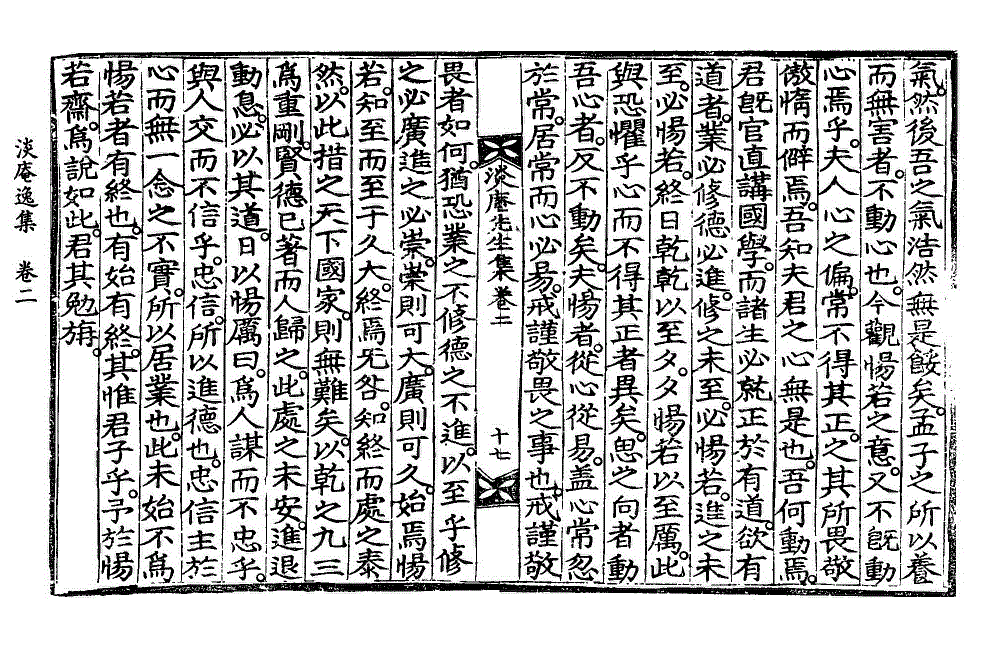 氣。然後吾之氣浩然無是餒矣。孟子之所以養
而無害者。不動心也。今觀惕若之意。又不旣動
心焉乎。夫人心之偏。常不得其正。之其所畏敬
傲惰而僻焉。吾知夫君之心無是也。吾何動焉。
君旣官直講國學。而諸生必就正於有道。欲有
道者。業必修德必進。修之未至。必惕若。進之未
至。必惕若。終日乾乾以至夕。夕惕若以至厲。此
與恐懼乎心而不得其正者異矣。思之向者動
吾心者。反不動矣。夫惕者。從心從易。盖心常忽
於常。居常而心必易。戒謹敬畏之事也。戒謹敬
淡庵先生集 卷二 十七
畏者如何。猶恐業之不修德之不進。以至乎修
之必廣進之必崇。崇則可大。廣則可久。始焉惕
若。知至而至于久大。終焉无咎。知終而處之泰
然。以此措之天下國家。則無難矣。以乾之九三
爲重剛。賢德已著而人歸之。此處之未安。進退
動息。必以其道。日以惕厲曰。爲人謀而不忠乎。
與人交而不信乎。忠信。所以進德也。忠信主於
心而無一念之不實。所以居業也。此未始不爲
惕若者有終也。有始有終。其惟君子乎。予於惕
若齋。爲說如此。君其勉旃。
淡庵逸集 卷二